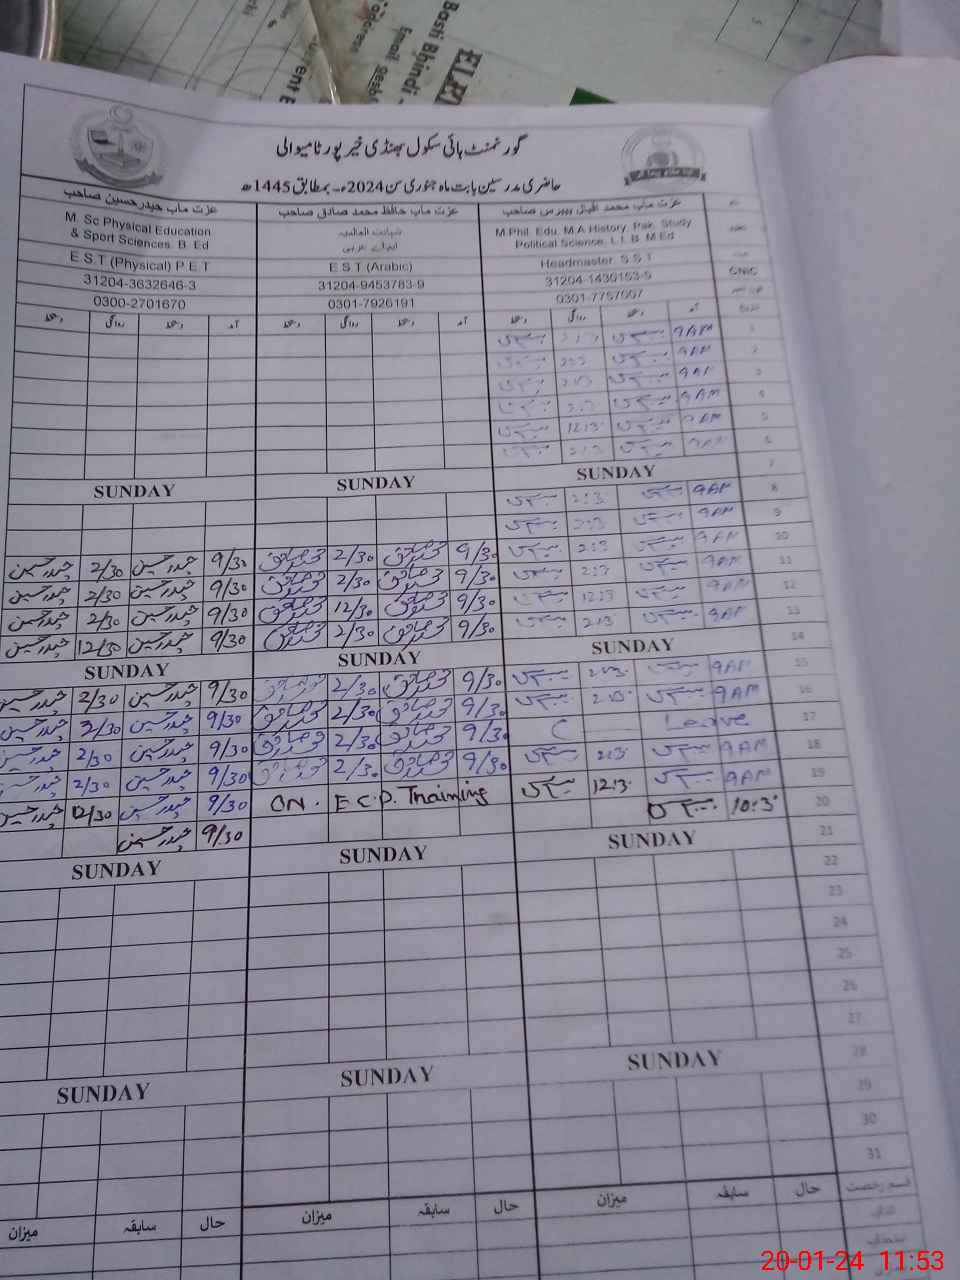 Basti Bhindi
ELE
address
Email
گورنمنٹ ہائی سکول بھنڈی خیر پور ٹامیوالی
حاضری مدرسین بابت ماہ جنوری سن 2024ء۔ بمطابق 1445ھ
عزت مآب محمد اقبال صاحب عزت مآب حافظ محمد صادق صاحب عزت مآب حیدر حسین صاحب
M.Phil. Edu. M.A History, Pak. Study
Political Science. L.L.B. M.Ed
شہادت العالمیہ
ایم اے عربی
M. Sc Physical Education
& Sport Sciences. B. Ed
Headmaster. S.S.T E S T (Arabic) E S T (Physical) P E T
CNIC 31204-1430153-5 31204-9453783-9 31204-3632646-3
0301-7757007 0301-7926191 0300-2701670
تاریخ آمد دستخط روانگی دستخط آمد دستخط روانگی دستخط آمد دستخط روانگی دستخط
1 9AM
2 9AM
3 9AM
4 9AM
5 9AM 12:3
6 9AM 2:3
7 SUNDAY SUNDAY SUNDAY
8 9AM 2:3
9 9AM 2:3
10 9AM 2:3 9/30 محمد صادق 2/30 محمد صادق 9/30 حیدر حسین 2/30 حیدر حسین
11 9AM 2:3 9/30 محمد صادق 2/30 محمد صادق 9/30 حیدر حسین 2/30 حیدر حسین
12 9AM 12:3 9/30 محمد صادق 12/30 محمد صادق 9/30 حیدر حسین 2/30 حیدر حسین
13 9AM 2:3 9/30 محمد صادق 2/30 محمد صادق 9/30 حیدر حسین 12/30 حیدر حسین
14 SUNDAY SUNDAY SUNDAY
15 9AM 2:3 9/30 محمد صادق 2/30 محمد صادق 9/30 حیدر حسین 2/30 حیدر حسین
16 9AM 2:3 9/30 محمد صادق 2/30 محمد صادق 9/30 حیدر حسین 2/30 حیدر حسین
17 Leave C 9/30 محمد صادق 2/30 محمد صادق 9/30 حیدر حسین 2/30 حیدر حسین
18 9AM 2:3 9/30 محمد صادق 2/30 محمد صادق 9/30 حیدر حسین 2/30 حیدر حسین
19 9AM 12:3 ON. E.C.D. Training 9/30 حیدر حسین 12/30 حیدر حسین
20 10:3 9/30 حیدر حسین
21 SUNDAY SUNDAY SUNDAY
22
23
24
25
26
27
28 SUNDAY SUNDAY SUNDAY
29
30
31
قسم رخصت حال سابقہ میزان حال سابقہ میزان حال سابقہ میزان
20-01-24 11:53